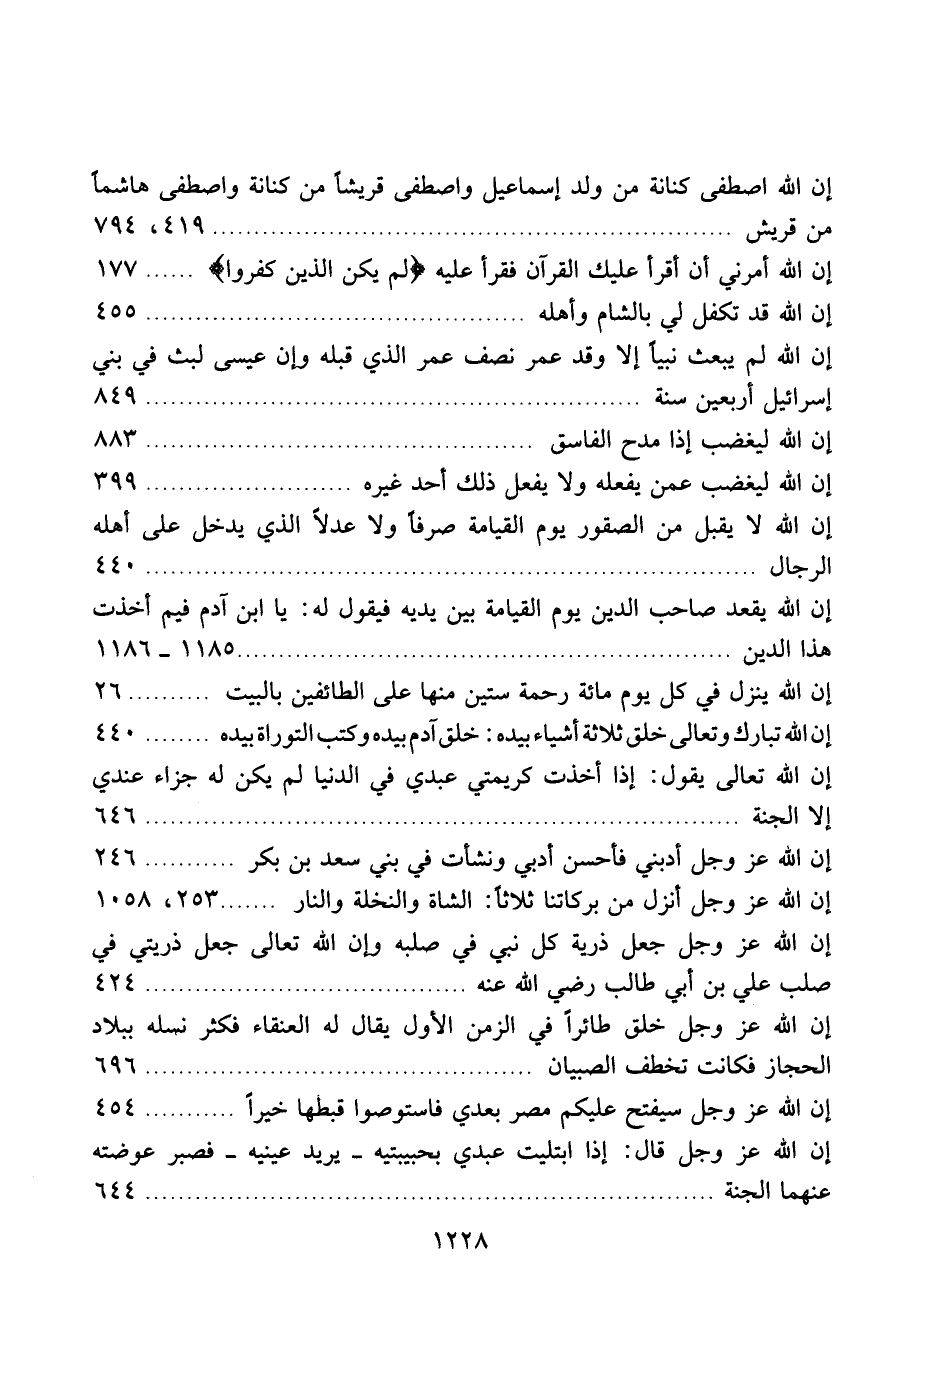 إن الله اصطفى كنانة من ولد إسماعيل واصطفى قريشاً من كنانة واصطفى هاشماً
من قريش ........ ٤١٩، ٧٩٤
إن الله أمرني أن أقرأ عليك القرآن فقرأ عليه ﴿لم يكن الذين كفروا﴾ ...... ١٧٧
إن الله قد تكفل لي بالشام وأهله ........ ٤٥٥
إن الله لم يبعث نبياً إلا وقد عمر نصف عمر الذي قبله وإن عيسى لبث في بني
إسرائيل أربعين سنة ........ ٨٤٩
إن الله ليغضب إذا مدح الفاسق ........ ٨٨٣
إن الله ليغضب عمن يفعله ولا يفعل ذلك أحد غيره ........ ٣٩٩
إن الله لا يقبل من الصقور يوم القيامة صرفاً ولا عدلاً الذي يدخل على أهله
الرجال ........ ٤٤٠
إن الله يقعد صاحب الدين يوم القيامة بين يديه فيقول له: يا ابن آدم فيم أخذت
هذا الدين ........ ١١٨٥ ـ ١١٨٦
إن الله ينزل في كل يوم مائة رحمة ستين منها على الطائفين بالبيت .......... ٢٦
إن الله تبارك وتعالى خلق ثلاثة أشياء بيده: خلق آدم بيده وكتب التوراة بيده ........ ٤٤٠
إن الله تعالى يقول: إذا أخذت كريمتي عبدي في الدنيا لم يكن له جزاء عندي
إلا الجنة ........ ٦٤٦
إن الله عز وجل أدبني فأحسن أدبي ونشأت في بني سعد بن بكر ........... ٢٤٦
إن الله عز وجل أنزل من بركاتنا ثلاثاً: الشاة والنخلة والنار .......٢٥٣، ١٠٥٨
إن الله عز وجل جعل ذرية كل نبي في صلبه وإن الله تعالى جعل ذريتي في
صلب علي بن أبي طالب رضي الله عنه ........ ٤٢٤
إن الله عز وجل خلق طائراً في الزمن الأول يقال له العنقاء فكثر نسله ببلاد
الحجاز فكانت تخطف الصبيان ........ ٦٩٦
إن الله عز وجل سيفتح عليكم مصر بعدي فاستوصوا قبطها خيراً ........... ٤٥٤
إن الله عز وجل قال: إذا ابتليت عبدي بحبيبتيه ـ يريد عينيه ـ فصبر عوضته
عنهما الجنة ........ ٦٤٤
١٢٢٨